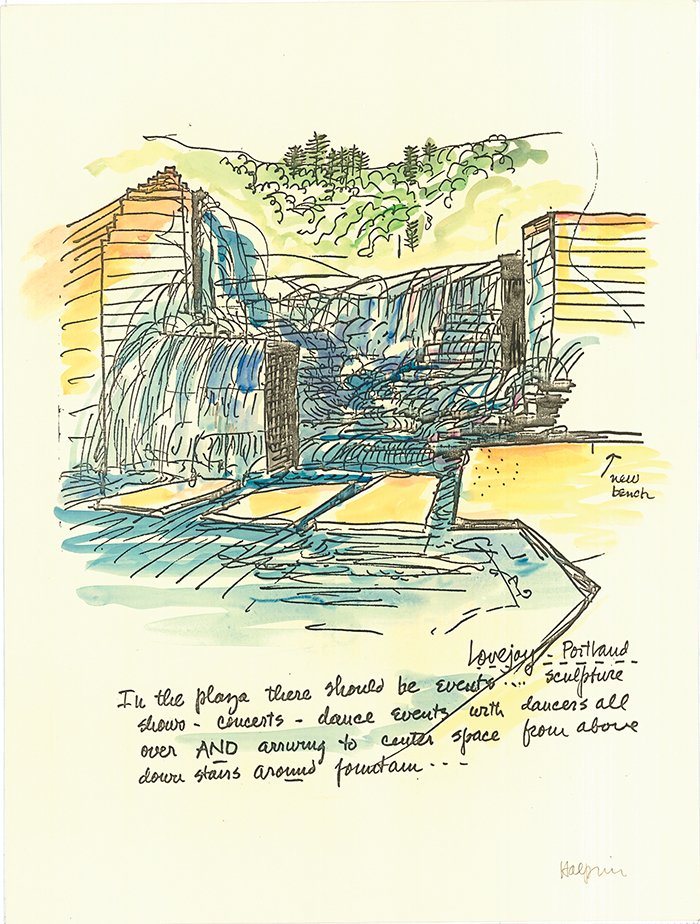 new
bench
Lovejoy - Portland
In the plaza there should be events ... sculpture
shows - concerts - dance events with dancers all
over AND arriving to center space from above
down stairs around fountain ...
Halprin